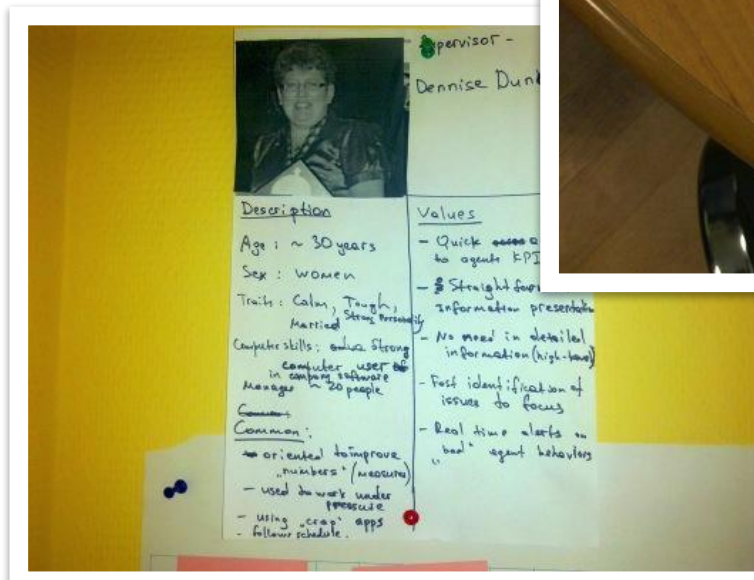 Supervisor -
Dennise
Description
Age : ~ 30 years
Sex : women
Traits : Calm, Tough,
Married Strong Personality
Computer skills : Strong
computer user
in company software
Manages ~ 20 people
Common :
- oriented to improve
"numbers" (measures)
- used to work under
pressure
- using "crap" apps
- follows schedule.
Values
- Quick
to agents KPI
- Straight
information presentation
- No need in detailed
information (high-level)
- Fast identification of
issues to focus
- Real time alerts on
"bad" agent behaviors